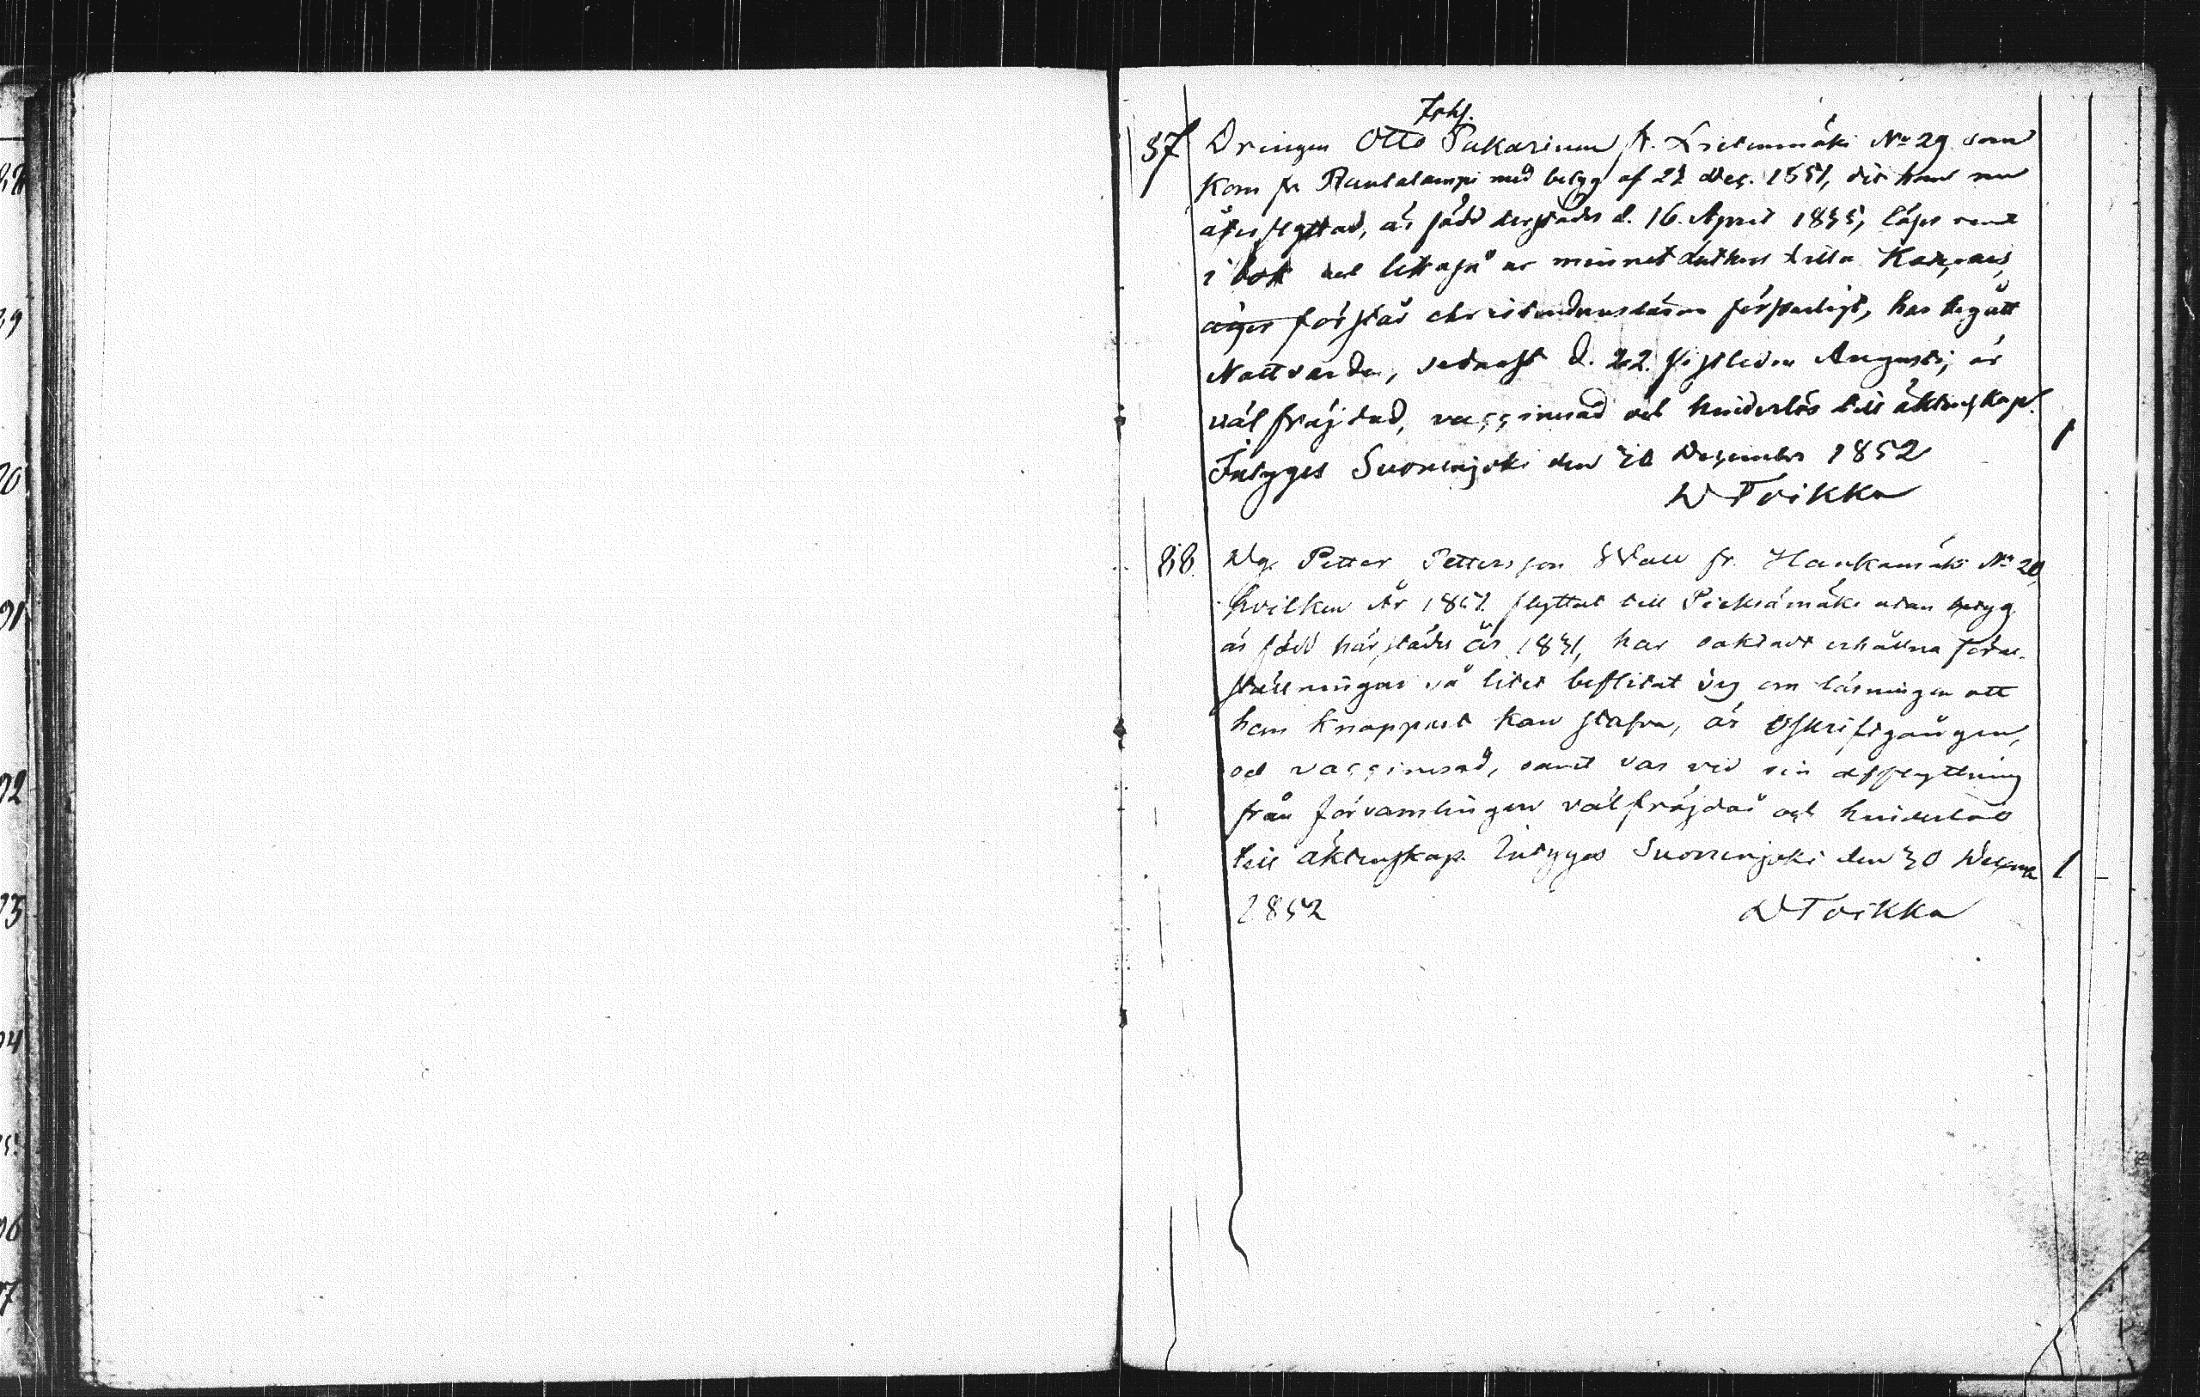 Joh.
87 Drängen Otto Pakarinen fr. Lietemäki No 29 som
kom fr Rautalampi med betyg af 21 Dec. 1851, dit han nu
återflyttad, är född derstädes d. 16. April 1835, läser rent
i bok och likaså ur minnet Luthers Lilla Kateches,
äger förstår christendomsläran försvarligt, har begått
Nattvarden, sednast d. 22. sistleden Augusti, är
välfräjdad, vaccinerad och hinderlös till äktenskap.
Intygas Suonenjoki den 30 December 1852 1
D Toikka
88. Dg. Petter Pettersson Wall fr. Haukamäki No 20,
hvilken År 1851 flyttat till Pieksämäki utan betyg
är född härstädes år 1831, har oaktadt erhållna före-
ställningar så litet beflitat sig om läsningen att
han knappast kan stafva, är Oskriftgången,
och vaccinerad, samt var vid sin afflyttning
från församlingen välfräjdad och hinderlös
till äktenskap. Intygas Suonenjoki den 30 December 1
1852 D Toikka